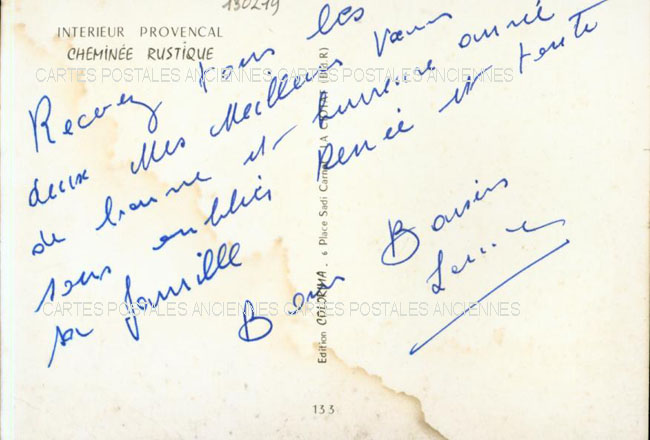 130219
INTERIEUR PROVENCAL
CHEMINÉE RUSTIQUE
CARTES POSTALES ANCIENNES CARTES POSTALES ANCIENNES
Recevez tous les
deux Mes Meilleurs Vœux
de bonne et heureuse année
sans oublier Renée et toute
sa famille
Bons Baisers
CARTES POSTALES ANCIENNES CARTES POSTALES ANCIENNES
Edition COLORIMA . 6 Place Sadi Carnot LA CIOTAT (B.d.R)
133